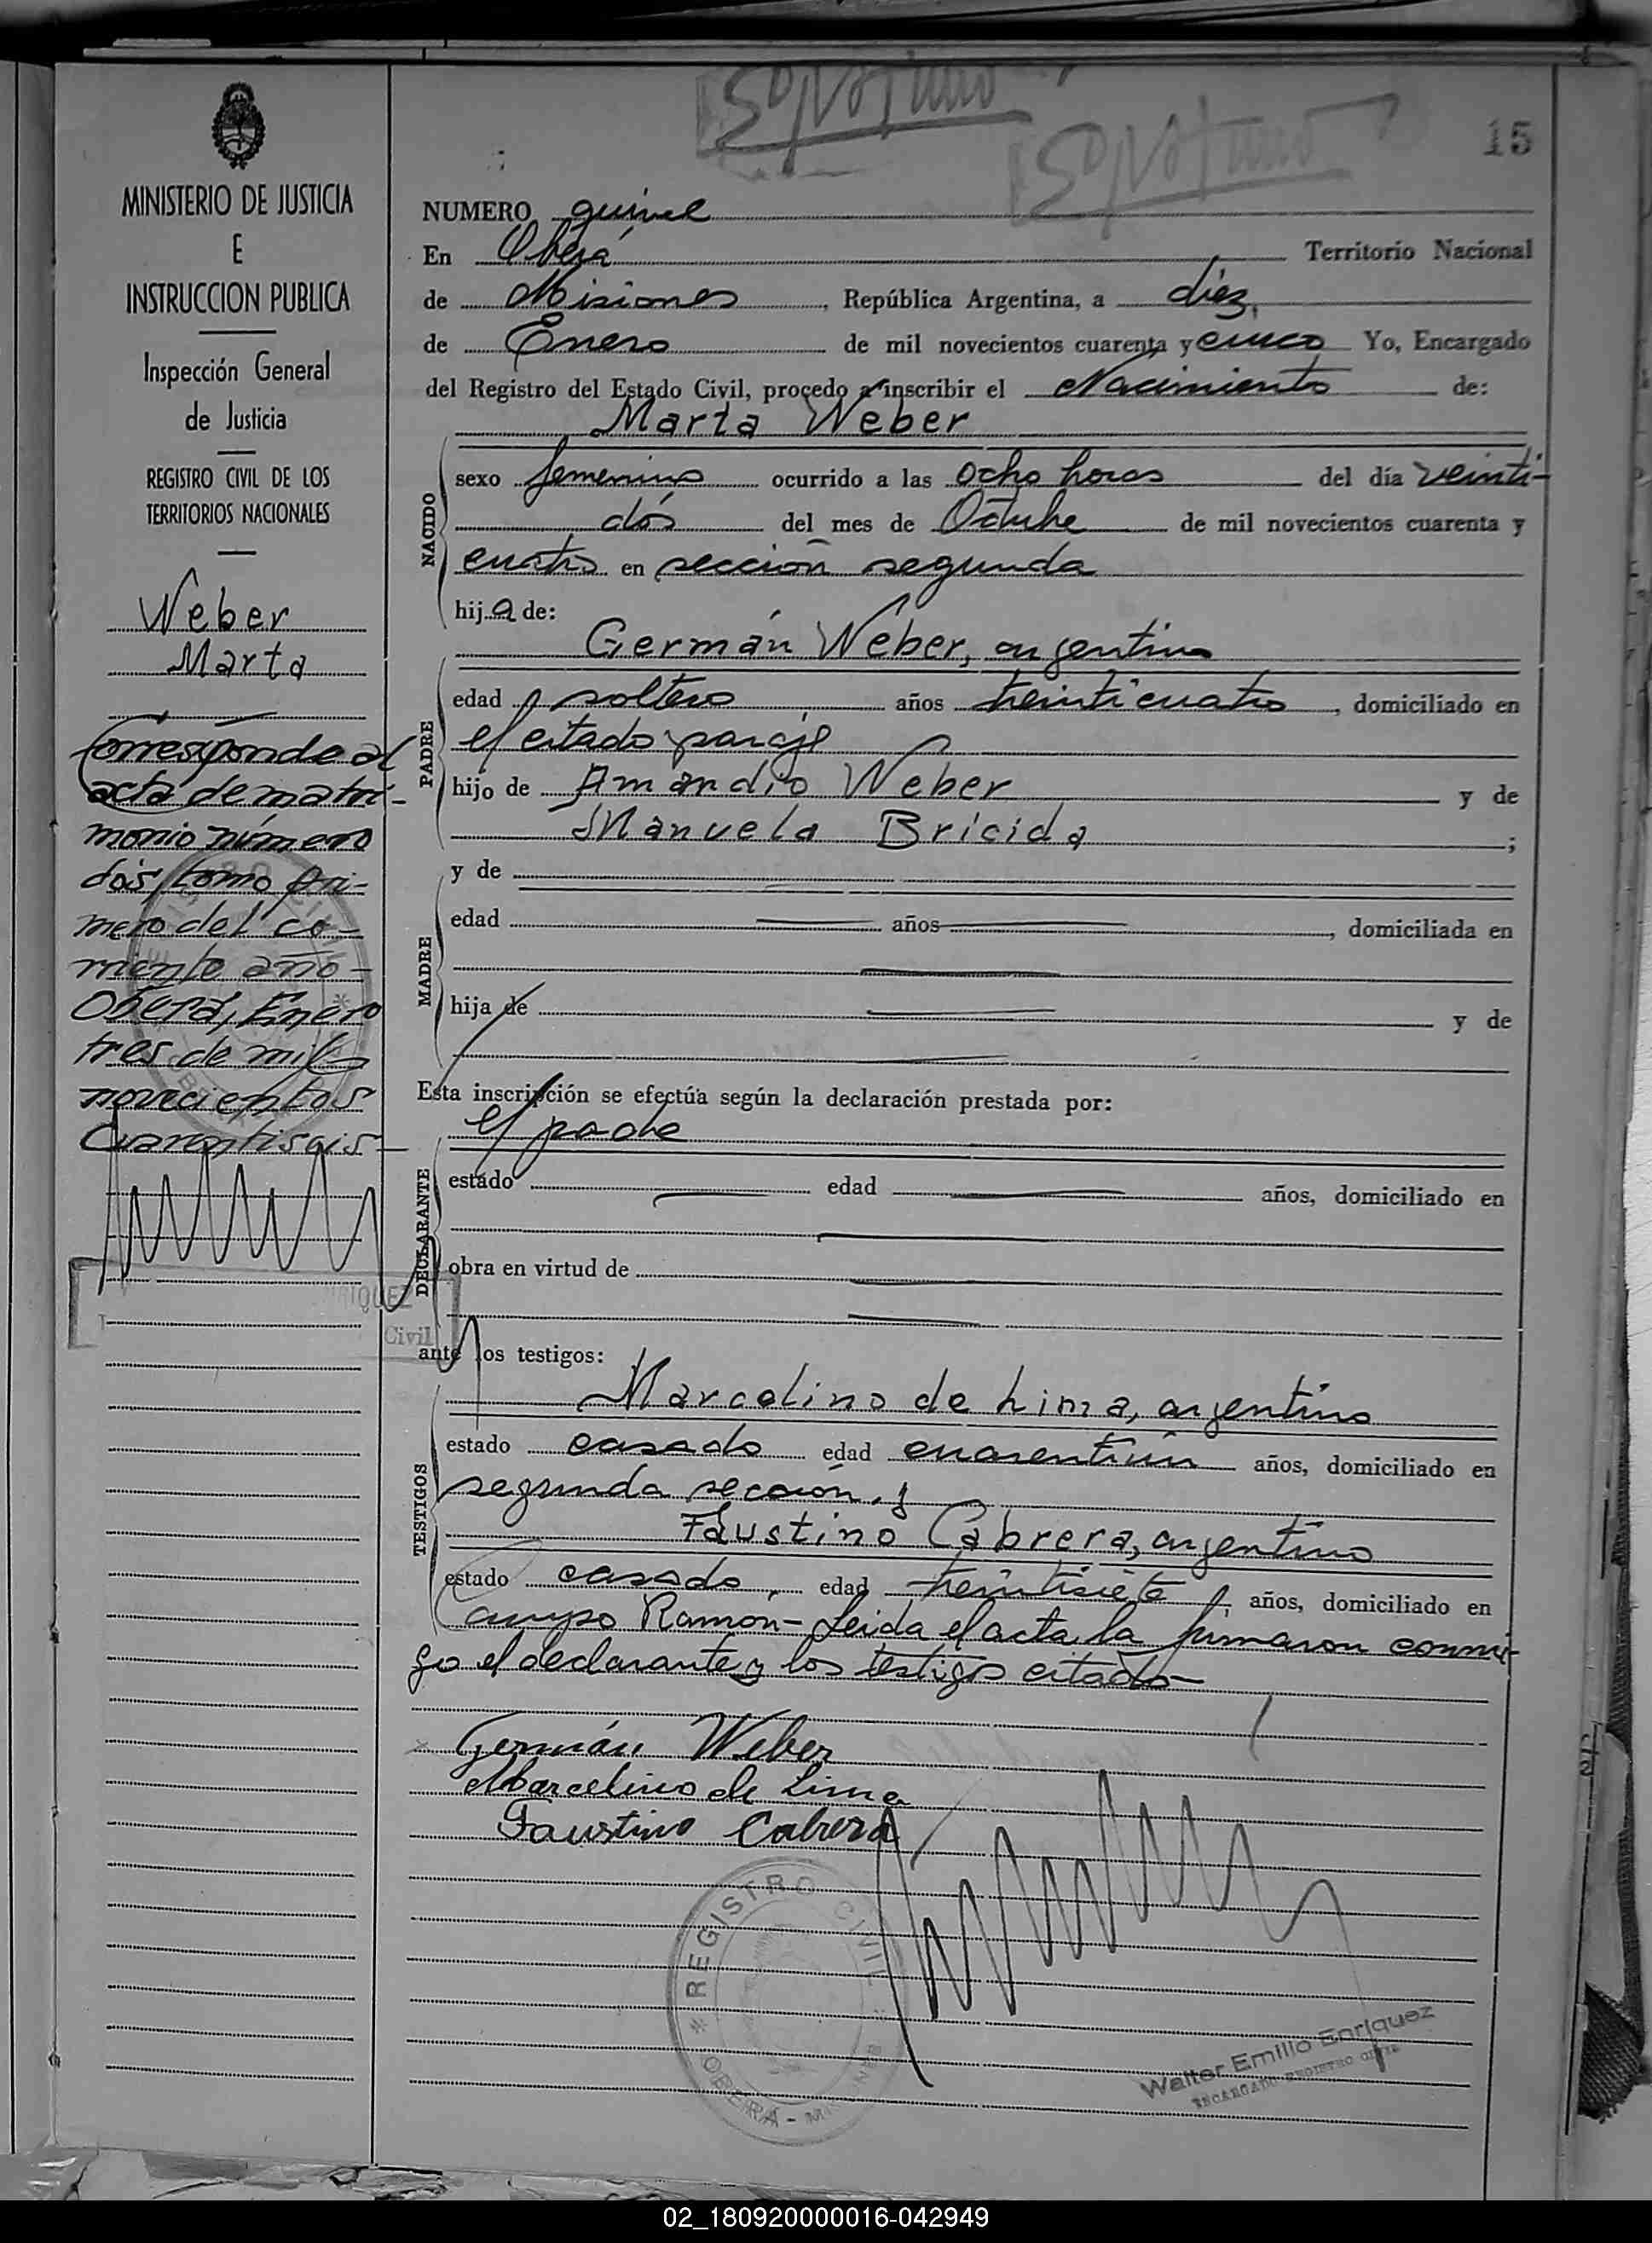 15
MINISTERIO DE JUSTICIA
E
INSTRUCCION PUBLICA
Inspección General
de Justicia
REGISTRO CIVIL DE LOS
TERRITORIOS NACIONALES
Weber
Marta
Corresponde al
acta de matri-
monio número
dos, tomo pri-
mero del co-
rriente año-
Oberá, Enero
tres de mil
novecientos
Cuarentiseis-
NUMERO quince
En Oberá Territorio Nacional
de Misiones, República Argentina, a diez,
de Enero de mil novecientos cuarenta y cinco Yo, Encargado
del Registro del Estado Civil, procedo a inscribir el Nacimiento de:
Marta Weber
NACIDO
sexo femenino ocurrido a las ocho horas del día veinti-
dós del mes de Octubre de mil novecientos cuarenta y
cuatro en sección segunda
hija de:
Germán Weber, argentino
PADRE
edad soltero años treinticuatro, domiciliado en
el citado paraje
hijo de Amandio Weber y de
Manuela Bricida;
y de
MADRE
edad años, domiciliada en
hija de y de
Esta inscripción se efectúa según la declaración prestada por:
el padre
DECLARANTE
estado edad años, domiciliado en
obra en virtud de
Civil
ante los testigos:
Marcelino de Lima, argentino
TESTIGOS
estado casado edad cuarentiún años, domiciliado en
segunda sección. y
Faustino Cabrera, argentino
estado casado, edad treintisiete, años, domiciliado en
Campo Ramón- Leida el acta la firmaron conmi-
go el declarante y los testigos citados-
Germán Weber
Marcelino de Lima
Faustino Cabrera
REGISTRO CIVIL
OBERÁ -
Walter Emilio Enriquez
ENCARGADO REGISTRO CIVIL
02_180920000016-042949